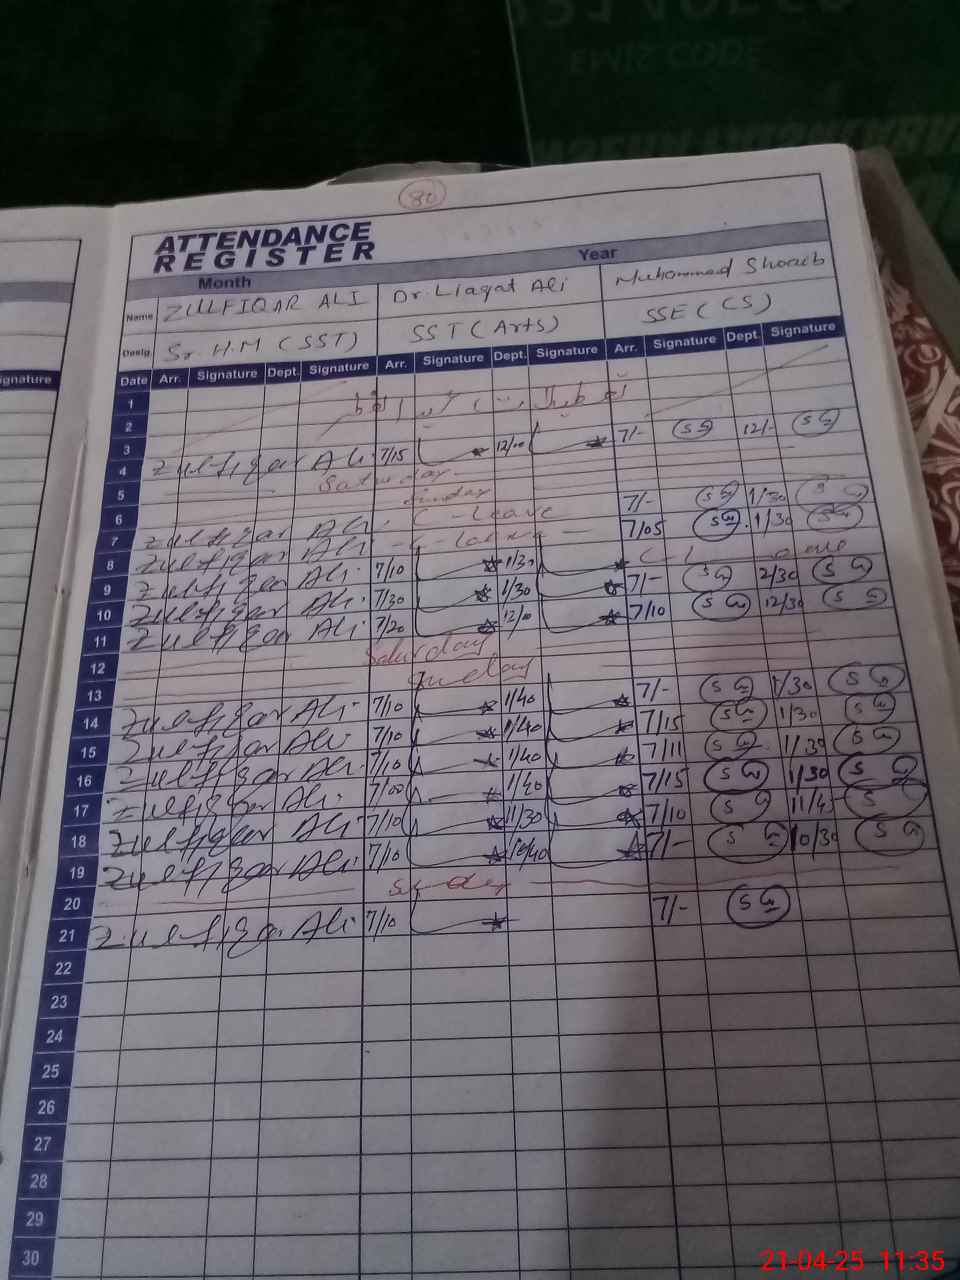 80
ATTENDANCE
REGISTER
Month Year
Name ZULFIQAR ALI Dr. Liaqat Ali Muhammad Shoaib
Desig. Sr. H.M (SST) SST (Arts) SSE (CS)
Signature
Date Arr. Signature Dept. Signature Arr. Signature Dept. Signature Arr. Signature Dept. Signature
1
2
3 7/15 12/00 7/- SG 12/- SG
4 Zulfiqar Ali Saturday
5 Sunday
6 C-Leave 7/- SG 1/30 SG
7 Zulfiqar Ali 7/05 SG 1/30 SG
8 Zulfiqar Ali 7/10 1/30
9 Zulfiqar Ali 7/30 1/30 7/- SG 2/30 SG
10 Zulfiqar Ali 7/20 12/00 7/10 SG 12/30 SG
11 Zulfiqar Ali Saturday
12 Sunday
13 7/10 1/40 7/- SG 1/30 SG
14 Zulfiqar Ali 7/10 1/40 7/15 SG 1/30 SG
15 Zulfiqar Ali 7/10 1/40 7/11 SG 1/30 SG
16 Zulfiqar Ali 7/00 1/40 7/15 SG 1/30 SG
17 Zulfiqar Ali 7/10 11/30 7/10 SG 11/45 SG
18 Zulfiqar Ali 7/10 10/40 7/- SG 10/30 SG
19 Zulfiqar Ali Sunday
20 7/- SG
21 Zulfiqar Ali 7/10
22
23
24
25
26
27
28
29
30
21-04-25 11:35